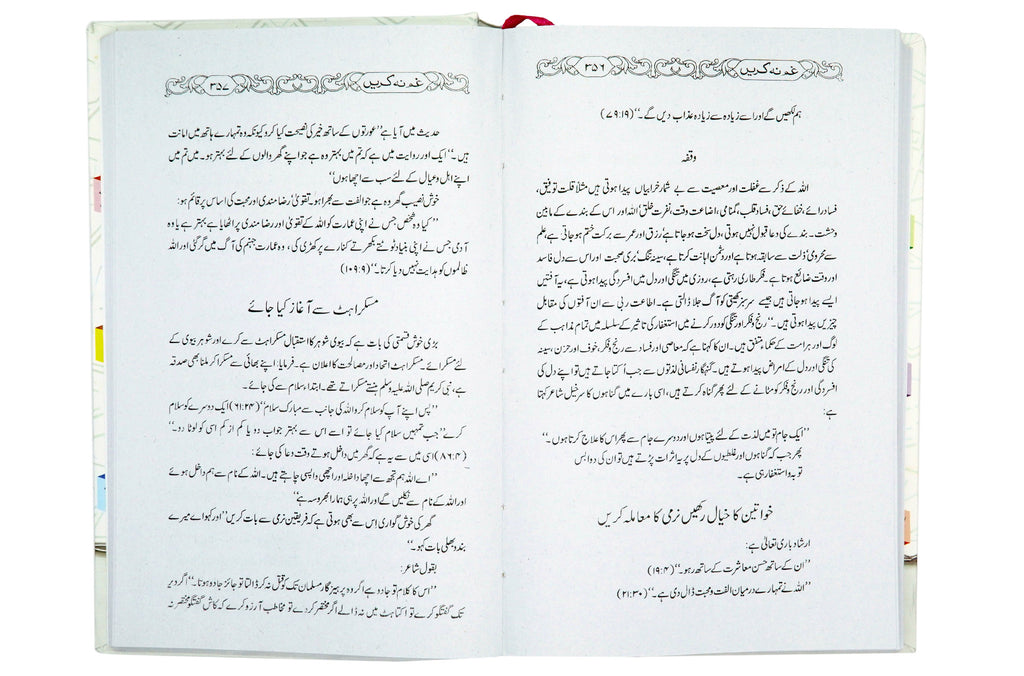 غم نہ کریں ۳۵۶
ہم لکھیں گے اور اسے زیادہ سے زیادہ عذاب دیں گے۔‘‘(۷۹:۱۹)
وقفہ
اللہ کے ذکر سے غفلت اور معصیت سے بے شمار خرابیاں پیدا ہوتی ہیں مثلاً قلت توفیق،
فساد رائے، خفائے حق، فساد قلب، گمنامی، اضاعت وقت، نفرت خلق اللہ اور اس کے بندے کے مابین
وحشت۔ بندے کی دعا قبول نہیں ہوتی، دل سخت ہو جاتا ہے’ رزق اور عمر سے برکت ختم ہو جاتی ہے، علم
سے محرومی’ ذلت سے سابقہ ہوتا ہے اور دشمن اہانت کرتا ہے، سینہ تنگ’ بری صحبت اور اس سے دل فاسد
اور وقت ضائع ہوتا ہے۔ فکر طاری رہتی ہے، روزی میں تنگی اور دل میں افسردگی پیدا ہوتی ہے، یہ آفتیں
ایسے پیدا ہو جاتی ہیں جیسے سرسبز کھیتی کو آگ جلا ڈالتی ہے۔ اطاعت ربی سے ان آفتوں کی مقابل
چیزیں پیدا ہوتی ہیں۔‘‘ رنج و فکر اور تنگی کو دور کرنے میں استغفار کی تاثیر کے سلسلہ میں تمام مذاہب کے
لوگ اور ہر امت کے حکماء متفق ہیں۔ ان کا کہنا ہے کہ معاصی اور فساد سے رنج و فکر، خوف اور حزن، سینہ
کی تنگی اور دل کے امراض پیدا ہوتے ہیں۔ گنہگار نفسانی لذتوں سے جب اُکتا جاتے ہیں تو اپنے دل کی
افسردگی اور رنج و فکر کو مٹانے کے لئے پھر گناہ کرتے ہیں، اسی بارے میں گناہوں کا سرخیل شاعر کہتا
ہے:
’’ایک جام تو میں لذت کے لئے پیتا ہوں اور دوسرے جام سے پھر اس کا علاج کرتا ہوں۔‘‘
پھر جب کہ گناہوں اور غلطیوں کے دل پر یہ اثرات پڑتے ہیں تو ان کی دوا بس
توبہ و استغفار ہی ہے۔
خواتین کا خیال رکھیں نرمی کا معاملہ کریں
ارشاد باری تعالیٰ ہے:
’’ان کے ساتھ حسن معاشرت کے ساتھ رہو۔‘‘ (۱۹:۴)
’’اللہ نے تمہارے درمیان الفت و محبت ڈال دی ہے۔‘‘ (۲۱:۳۰)
غم نہ کریں ۳۵۷
حدیث میں آیا ہے’’عورتوں کے ساتھ خیر کی نصیحت کیا کرو کیونکہ وہ تمہارے ہاتھ میں امانت
ہیں۔‘‘ ایک اور روایت میں ہے کہ تم میں بہتر وہ ہے جو اپنے گھر والوں کے لئے بہتر ہو۔ میں تم میں
اپنے اہل و عیال کے لئے سب سے اچھا ہوں‘‘
خوش نصیب گھر وہ ہے جو الفت سے بھرا ہو۔ تقویٰ’ رضا مندی اور محبت کی اساس پر قائم ہو:
’’کیا وہ شخص جس نے اپنی عمارت کو اللہ کے تقویٰ اور رضا مندی پر اٹھایا ہے بہتر ہے یا وہ
آدمی جس نے اپنی بنیاد ٹوٹتے بکھرتے کنارے پر کھڑی کی ، وہ عمارت جہنم کی آگ میں گر گئی اور اللہ
ظالموں کو ہدایت نہیں دیا کرتا۔‘‘ (۱۰۹:۹)
مسکراہٹ سے آغاز کیا جائے
بڑی خوش قسمتی کی بات ہے کہ بیوی شوہر کا استقبال مسکراہٹ سے کرے اور شوہر بیوی کے
لئے مسکرائے۔ مسکراہٹ اتحاد اور مصالحت کا اعلان ہے۔ فرمایا: اپنے بھائی سے مسکرا کر ملنا بھی صدقہ
ہے، نبی کریم صلی اللہ علیہ وسلم ہنستے مسکراتے تھے۔ ابتداء سلام سے کی جائے۔
’’پس اپنے آپ کو سلام کرو اللہ کی جانب سے مبارک سلام‘‘ (۶۱:۲۴) ایک دوسرے کو سلام
کرے’’ جب تمہیں سلام کیا جائے تو اسے اس سے بہتر جواب دو یا کم از کم اسی کو لوٹا دو۔‘‘
(۸۶:۴) اسی میں سے یہ ہے کہ گھر میں داخل ہوتے وقت دعا کی جائے:
’’اے اللہ ہم تجھ سے اچھا داخلہ اور اچھی واپسی چاہتے ہیں۔ اللہ کے نام سے ہم داخل ہوئے
اور اللہ کے نام سے نکلیں گے اور اللہ پر ہی ہمارا بھروسہ ہے‘‘
گھر کی خوش گواری اِس سے بھی ہوتی ہے کہ فریقین نرمی سے بات کریں’’ اور کہو اے میرے
بندو بھلی بات کہو۔‘‘
بقول شاعر:
’’اس کا کلام تو جادو ہے اگر وہ پرہیز گار مسلمان تک کو قتل نہ کر ڈالتا تو جائز جادو ہوتا۔‘‘ اگر دیر
تک گفتگو کرے تو اکتاہٹ میں نہ ڈالے اگر مختصر کر دے تو مخاطب آرزو کرے کہ کاش گفتگو مختصر نہ